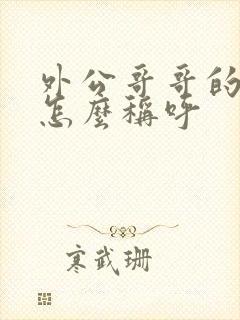 外公哥哥的
怎麼稱呼
寒武珊